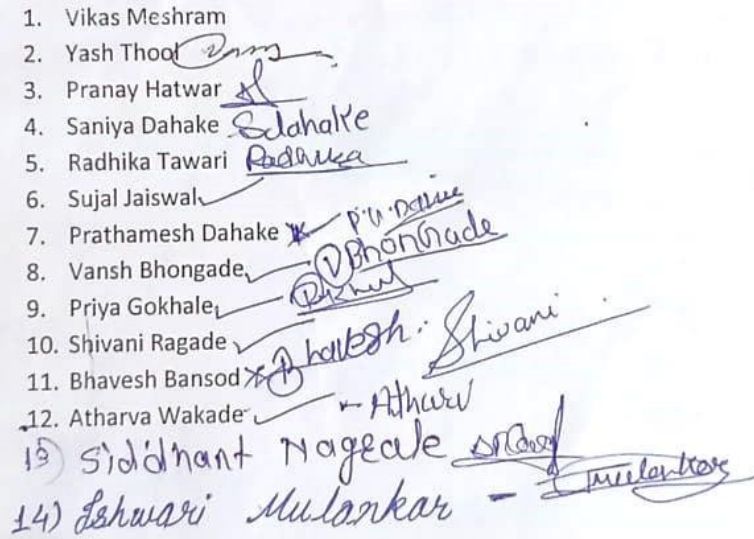 1. Vikas Meshram
2. Yash Thool
3. Pranay Hatwar
4. Saniya Dahake Sdahake
5. Radhika Tawari Radhika
6. Sujal Jaiswal
7. Prathamesh Dahake
8. Vansh Bhongade V Bhongade
9. Priya Gokhale
10. Shivani Ragade Shivani
11. Bhavesh Bansod Bhavesh
12. Atharva Wakade - Atharv
13) Siddhant Nageale
14) Ishwari Mulankar - Gmulankar